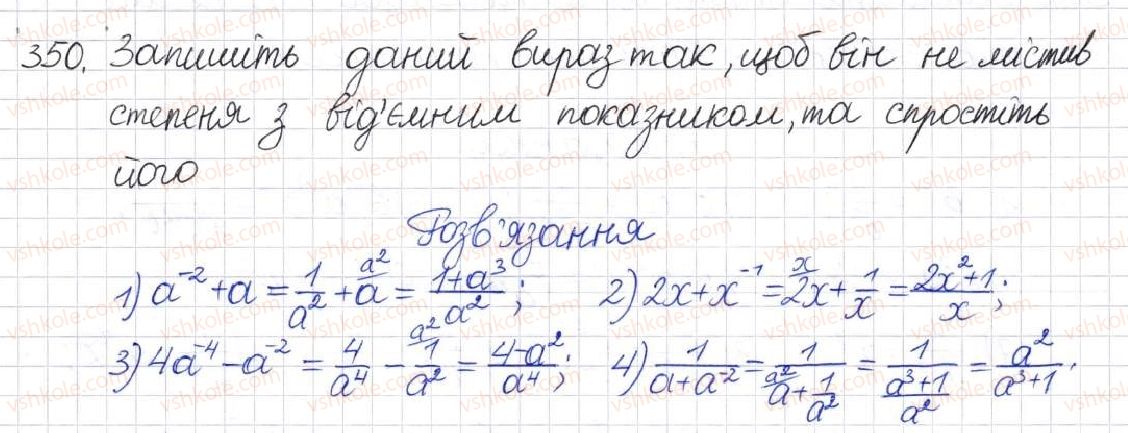 350. Запишіть даний вираз так, щоб він не містив
степеня з від'ємним показником, та спростіть
його
Розв'язання
1) a⁻² + a = 1/a² + a^{\a²} = (1+a³)/a²; 2) 2x + x⁻¹ = 2x^{\x} + 1/x = (2x²+1)/x;
3) 4a⁻⁴ - a⁻² = 4/a⁴ - 1/a²^{\a²} = (4-a²)/a⁴; 4) 1/(a+a⁻²) = 1/(a^{\a²} + 1/a²) = 1/((a³+1)/a²) = a²/(a³+1).
vshkole.com